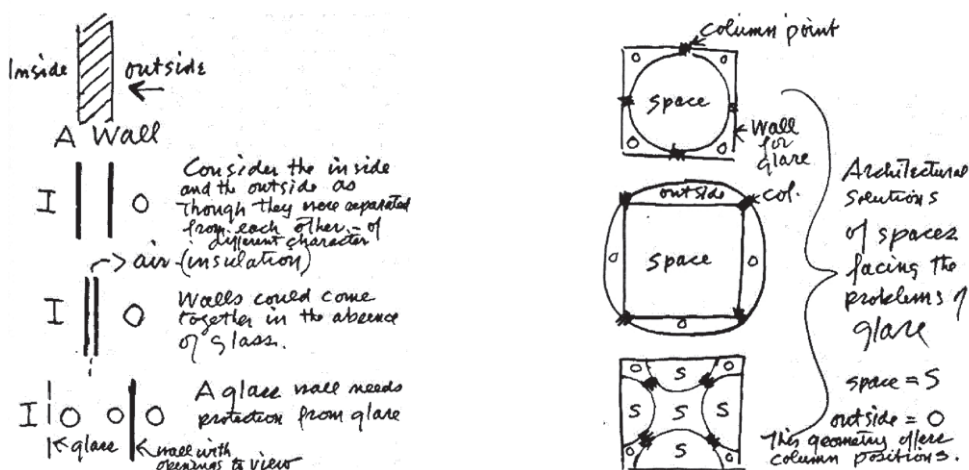 Inside
outside
A Wall
I
O
Consider the inside
and the outside as
though they were separated
from each other - of
different character
air (insulation)
I
O
Walls could come
together in the absence
of glass.
I
O
O
O
A glass wall needs
protection from glare
glass
wall with
openings to view
column point
O
O
space
O
O
wall
for
glare
outside
col.
O
space
O
O
O
S
O
S
S
S
O
S
O
Architectural
solutions
of spaces
facing the
problems of
glare
space = S
outside = O
This geometry offers
column positions.